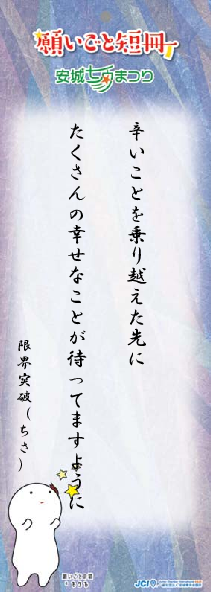 願いごと短冊
安城七夕まつり
辛いことを乗り越えた先に
たくさんの幸せなことが待ってますように
限界突破(ちさ)